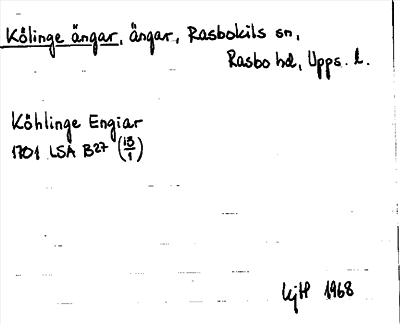 Kölinge ängar, ängar, Rasbokils sn,
Rasbo hd, Upps. l.
Köhlinge Engiar
1701 LSA B27 (13/1)
1968